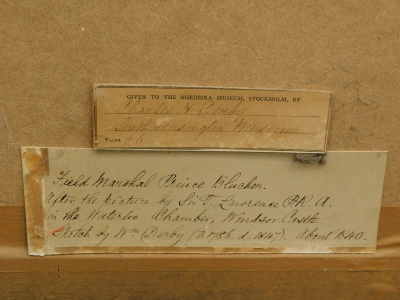 GIVEN TO THE NORDISKA MUSEUM, STOCKHOLM, BY
Charles Derby
South Kensington Museum
VALUE £6
Field Marshal Prince Blucher.
After the picture by Sir T. Lawrence P.R.A.
in the Waterloo Chamber, Windsor Castle
Sketch by Wm Derby (b. 1786. d. 1847). about 1840.